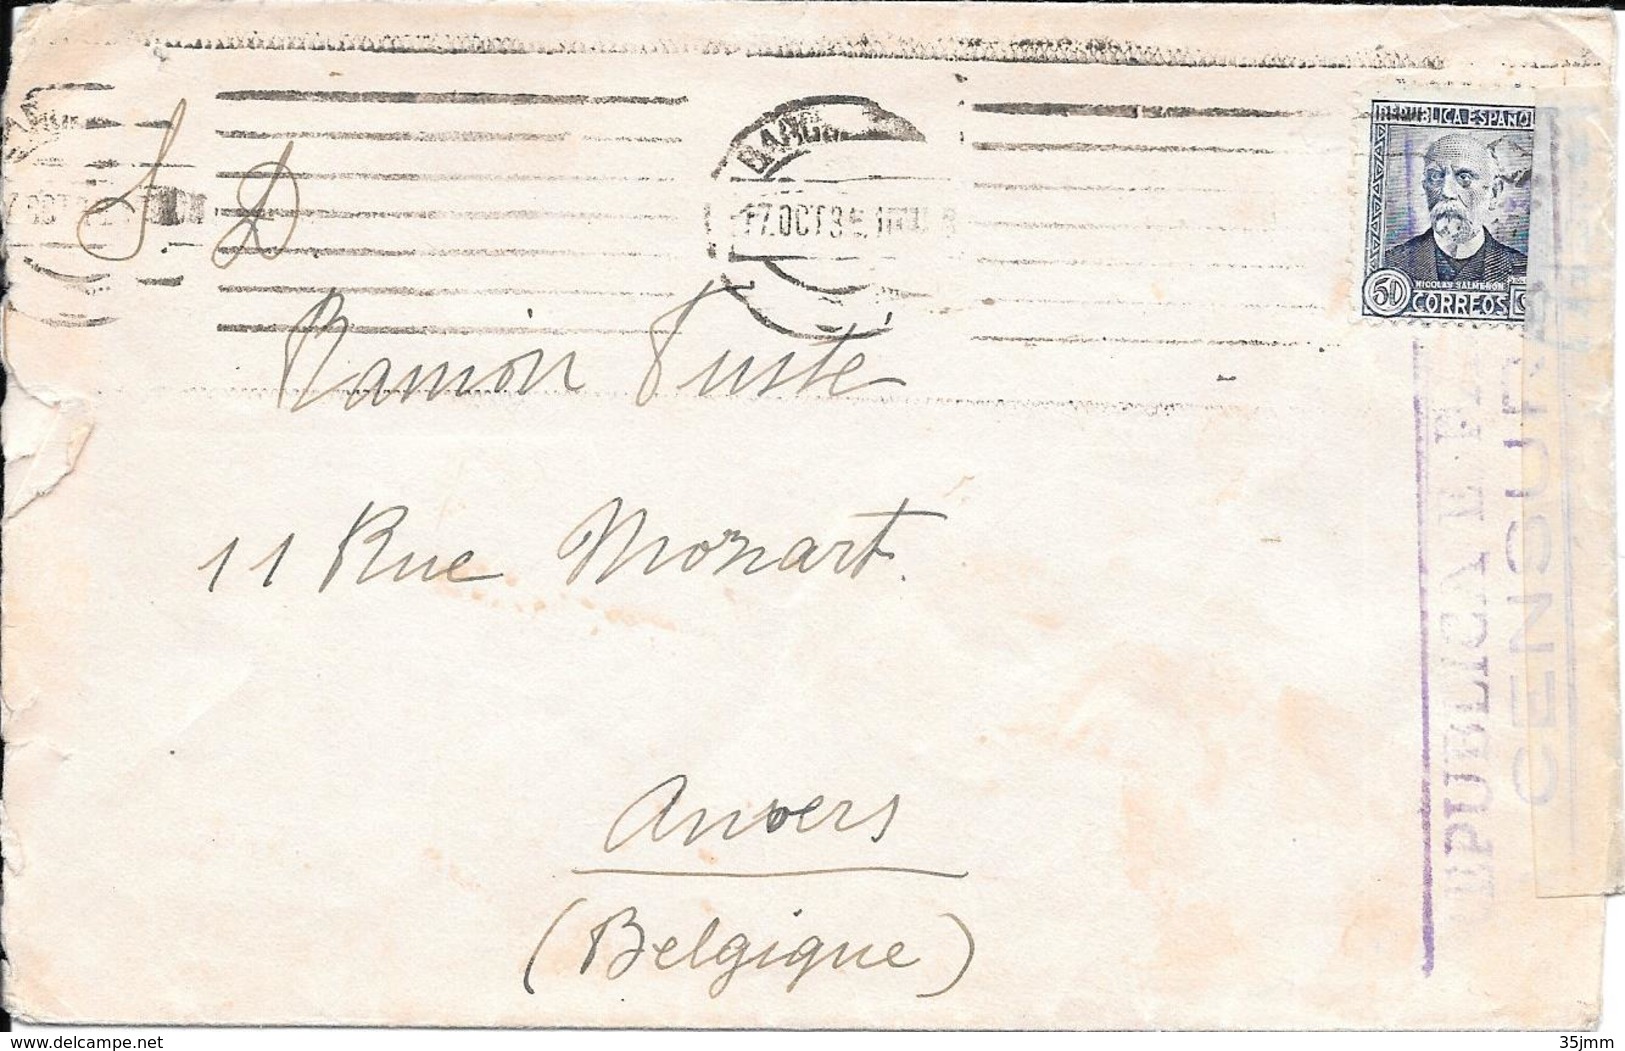 S D
BARC
17.OCT3
REPUBLICA ESPAÑO
NICOLAS SALMERON
50 CORREOS
Ramón Fuste
11 Rue Mozart.
Anvers
(Belgique)
CENSURA
www.delcampe.net
35jmm